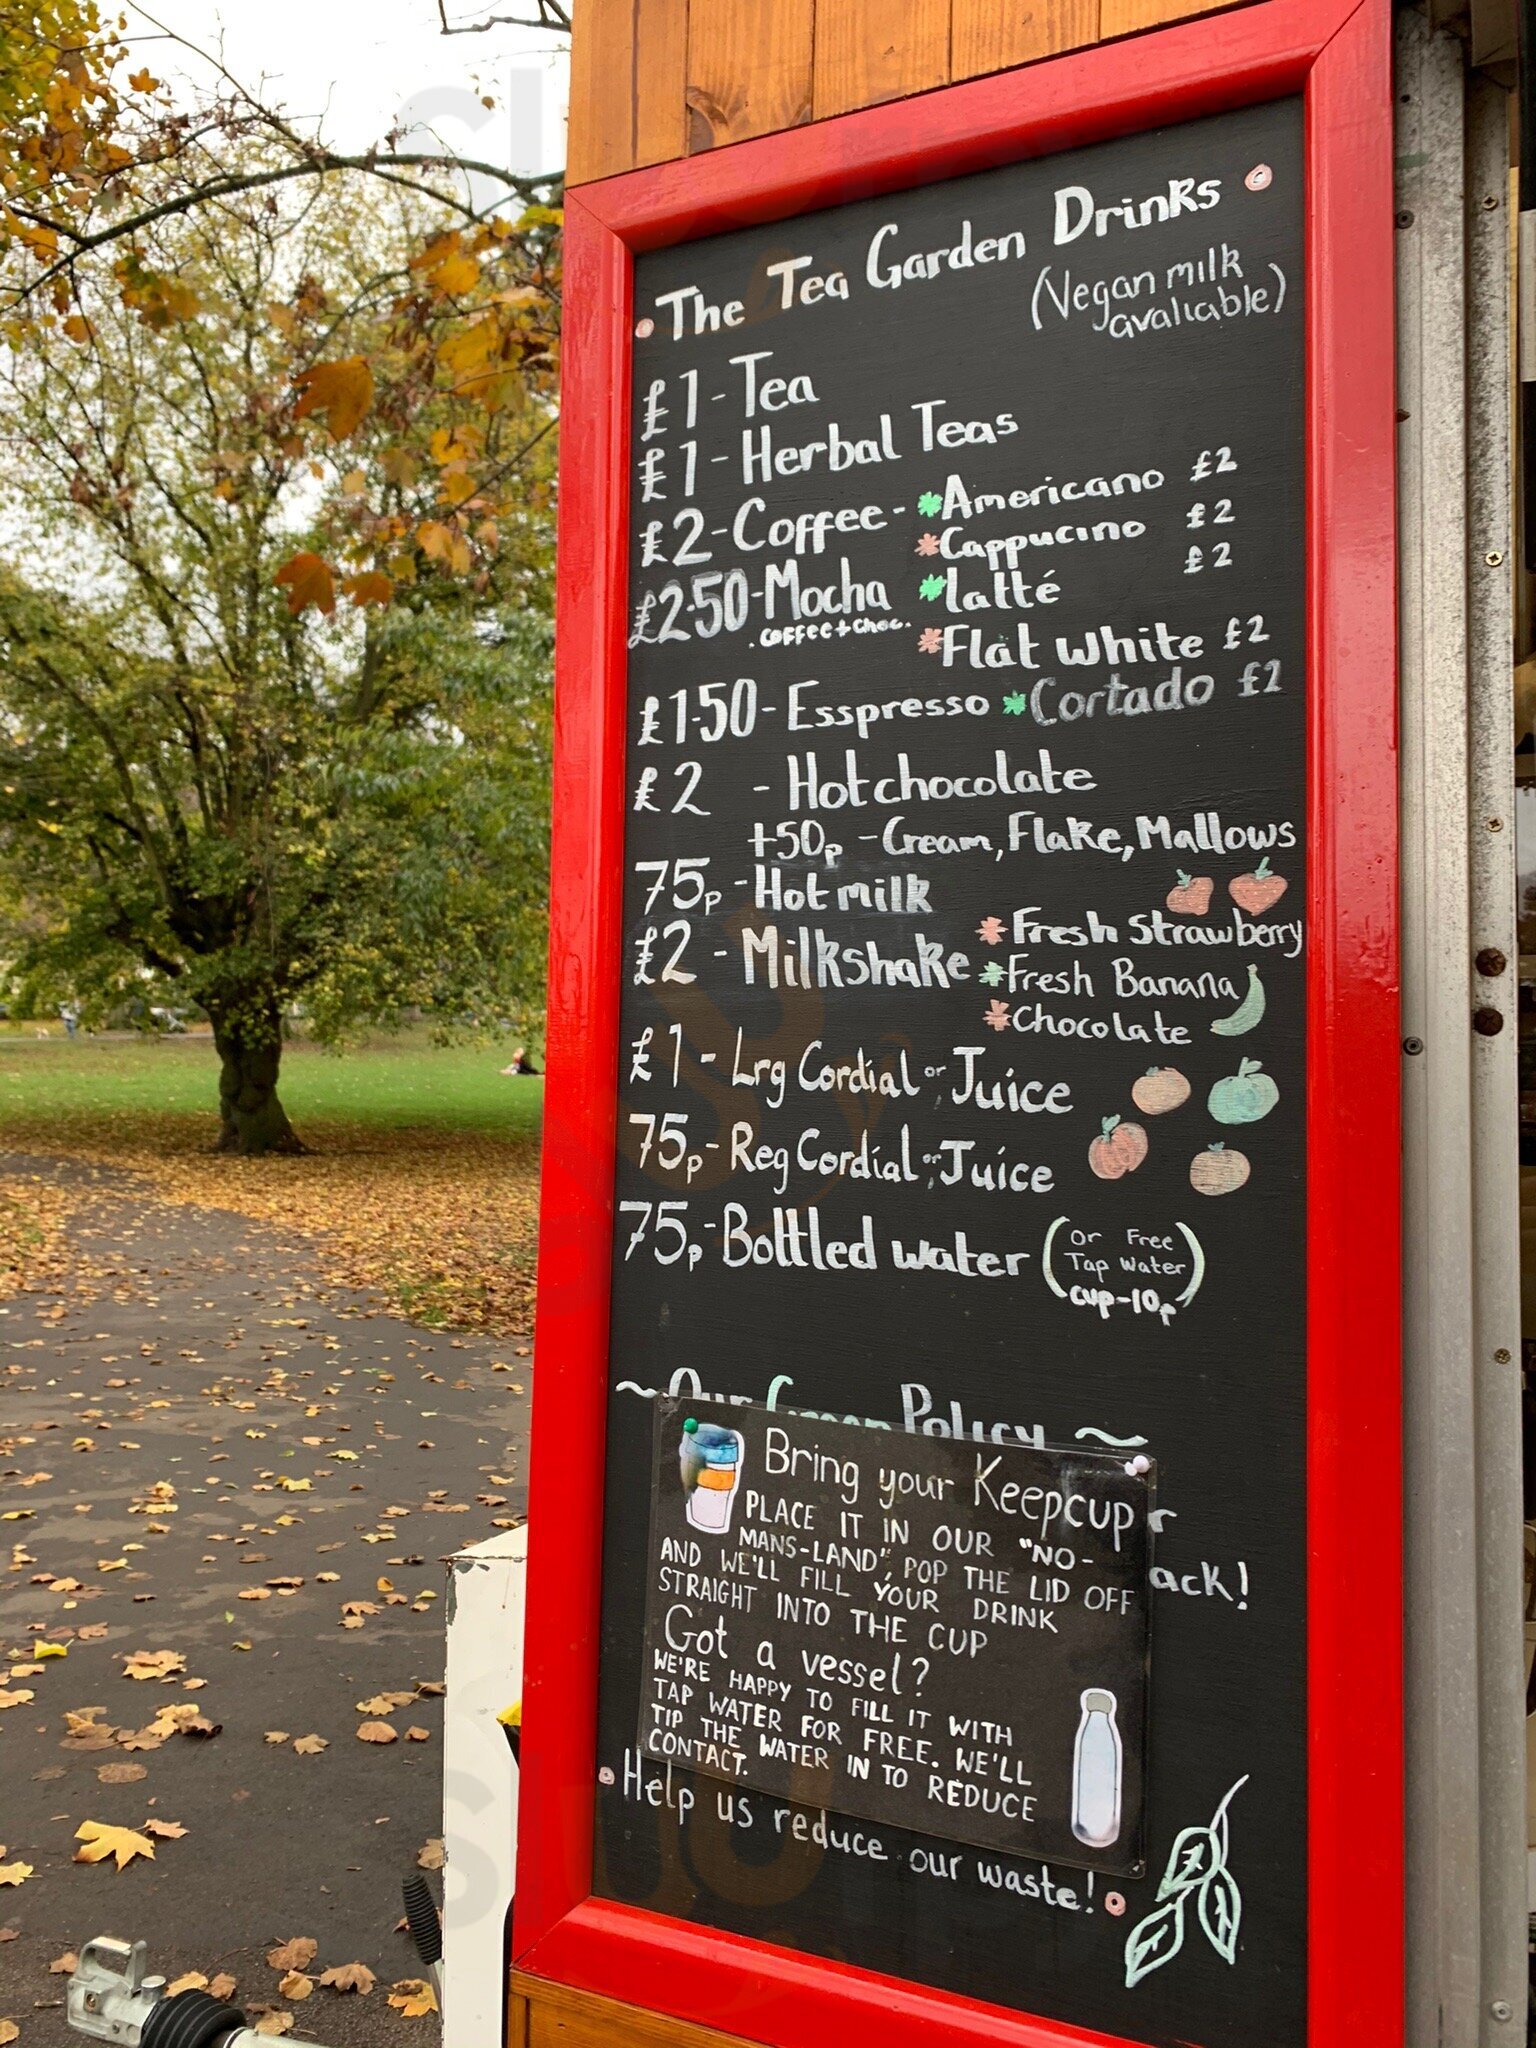 The Tea Garden Drinks
(Vegan milk
avaliable)
£1 - Tea
£1 - Herbal Teas
£2 - Coffee - Americano £2
Cappucino £2
£2.50 - Mocha latté £2
.coffee + choc.
Flat white £2
£1.50 - Esspresso Cortado £2
£2 - Hot chocolate
+50p - Cream, Flake, Mallows
75p - Hot milk
£2 - Milkshake Fresh Strawberry
Fresh Banana
Chocolate
£1 - Lrg Cordial or Juice
75p - Reg Cordial or Juice
75p - Bottled water (or Free
Tap Water)
cup - 10p
~ Our Green Policy ~
Bring your Keepcup
PLACE IT IN OUR "NO-
MANS-LAND", POP THE LID OFF
AND WE'LL FILL YOUR DRINK
STRAIGHT INTO THE CUP
ack!
Got a vessel?
WE'RE HAPPY TO FILL IT WITH
TAP WATER FOR FREE. WE'LL
TIP THE WATER IN TO REDUCE
CONTACT.
Help us reduce our waste!